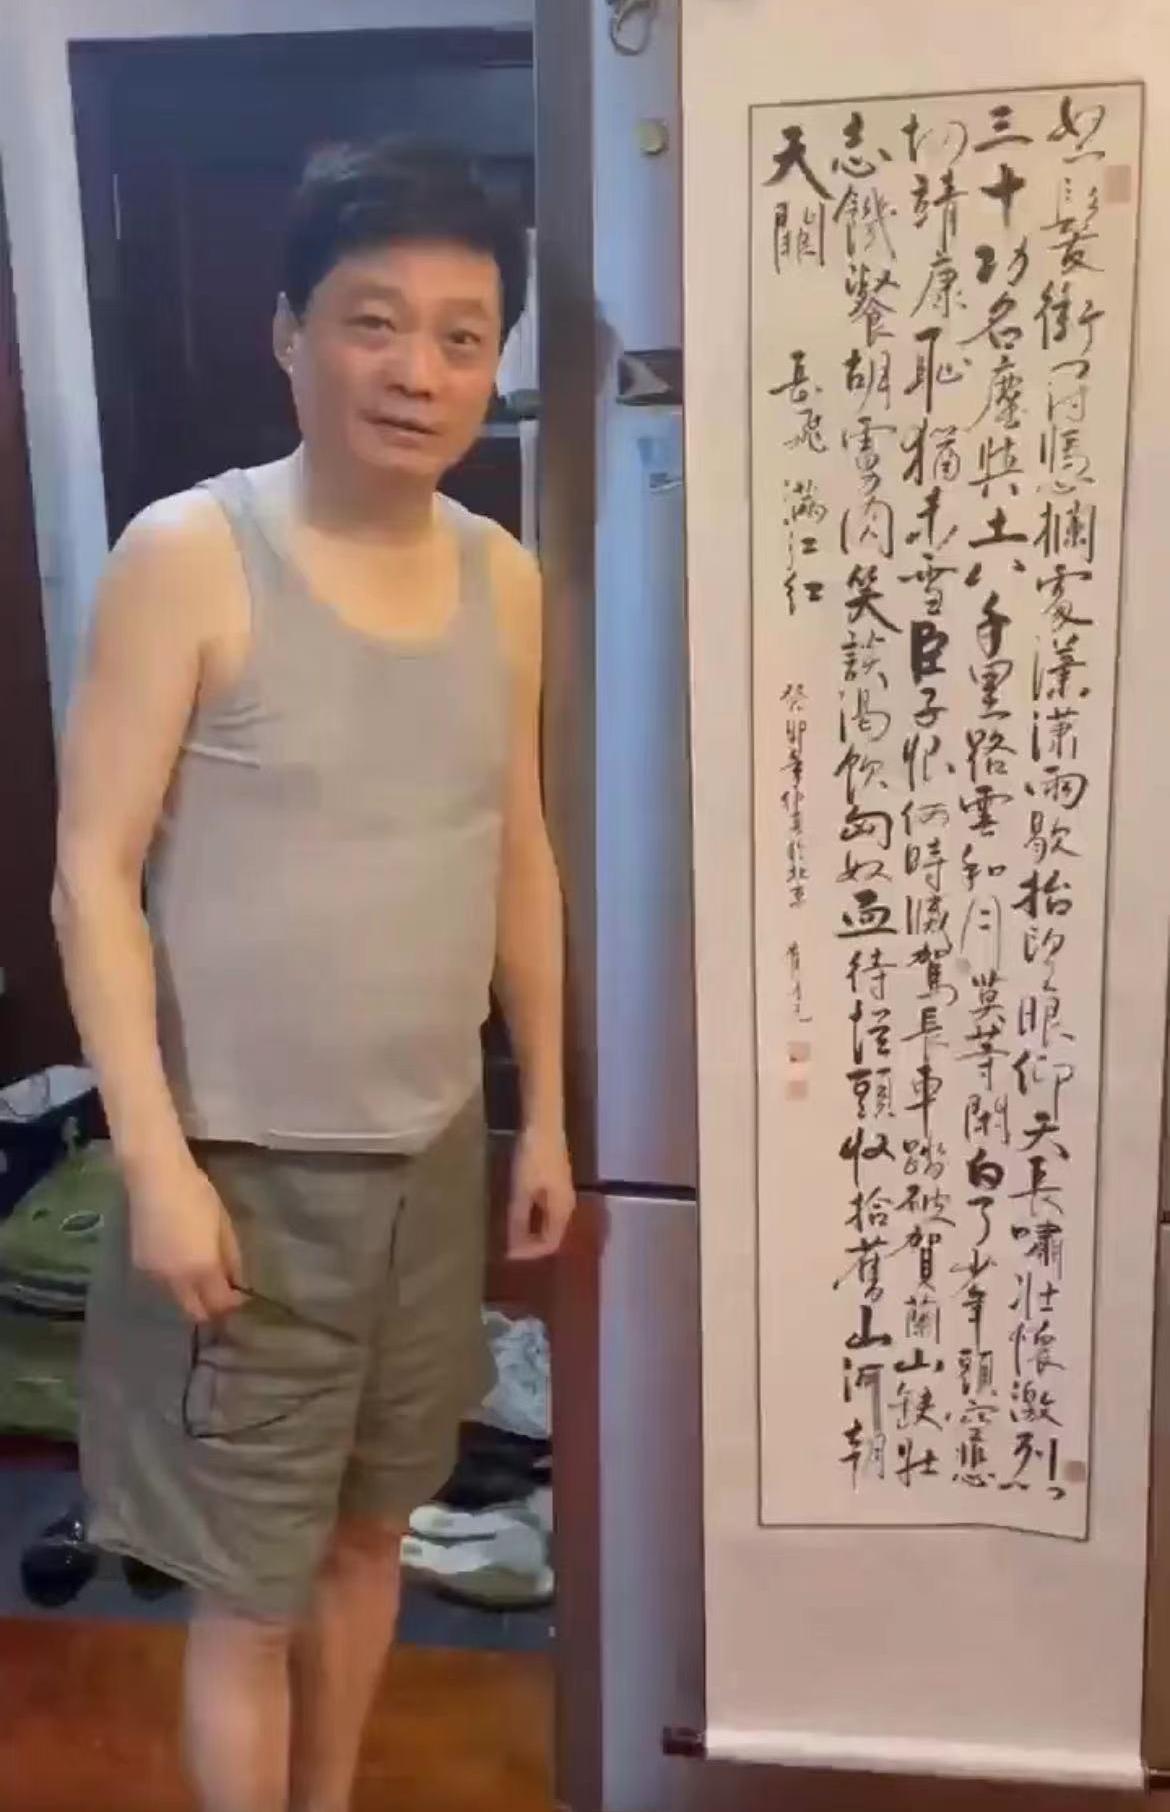 怒髮衝冠憑欄處瀟瀟雨歇抬望眼仰天長嘯壯懷激烈
三十功名塵與土八千里路雲和月莫等閑白了少年頭空悲
切靖康恥猶未雪臣子恨何時滅駕長車踏破賀蘭山缺壯
志饑餐胡虜肉笑談渴飲匈奴血待從頭收拾舊山河朝
天闕 岳飛 滿江紅 癸卯年仲夏於北京